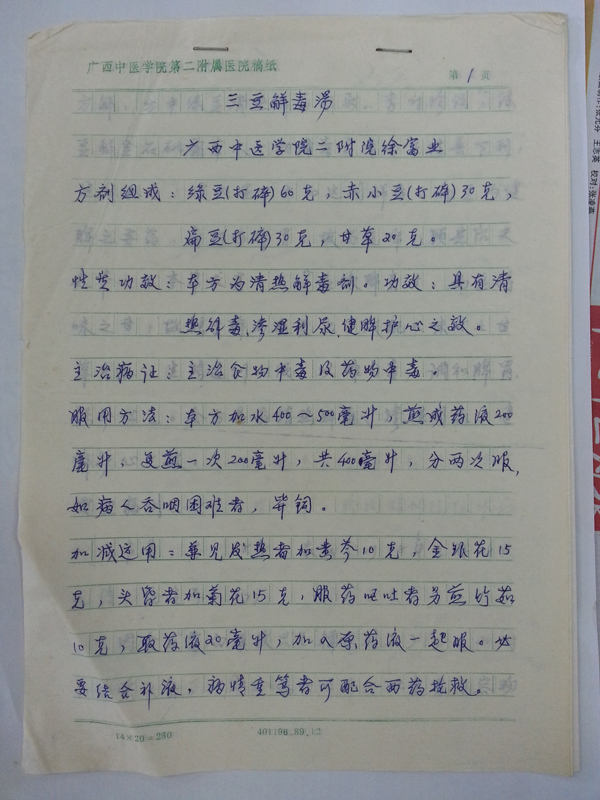 广西中医学院第二附属医院稿纸
第1页
三豆解毒汤
广西中医学院二附院徐富业
方剂组成：绿豆(打碎)60克，赤小豆(打碎)30克，
扁豆(打碎)30克，甘草20克。
性质功效：本方为清热解毒剂。功效：具有清
热解毒、渗湿利尿、健脾护心之效。
主治病证：主治食物中毒及药物中毒。
服用方法：本方加水400～500毫升，煎成药液200
毫升，复煎一次200毫升，共400毫升，分两次服，
如病人吞咽困难者，鼻饲。
加减运用：兼见发热者加黄芩10克，金银花15
克，头晕者加菊花15克，服药呕吐者另煎竹茹
10克，取药液20毫升，加入原药液一起服。必
要结合补液，病情重笃者可配合西药抢救。
14×20=280
401196.89.12
王志英 校对：张凌